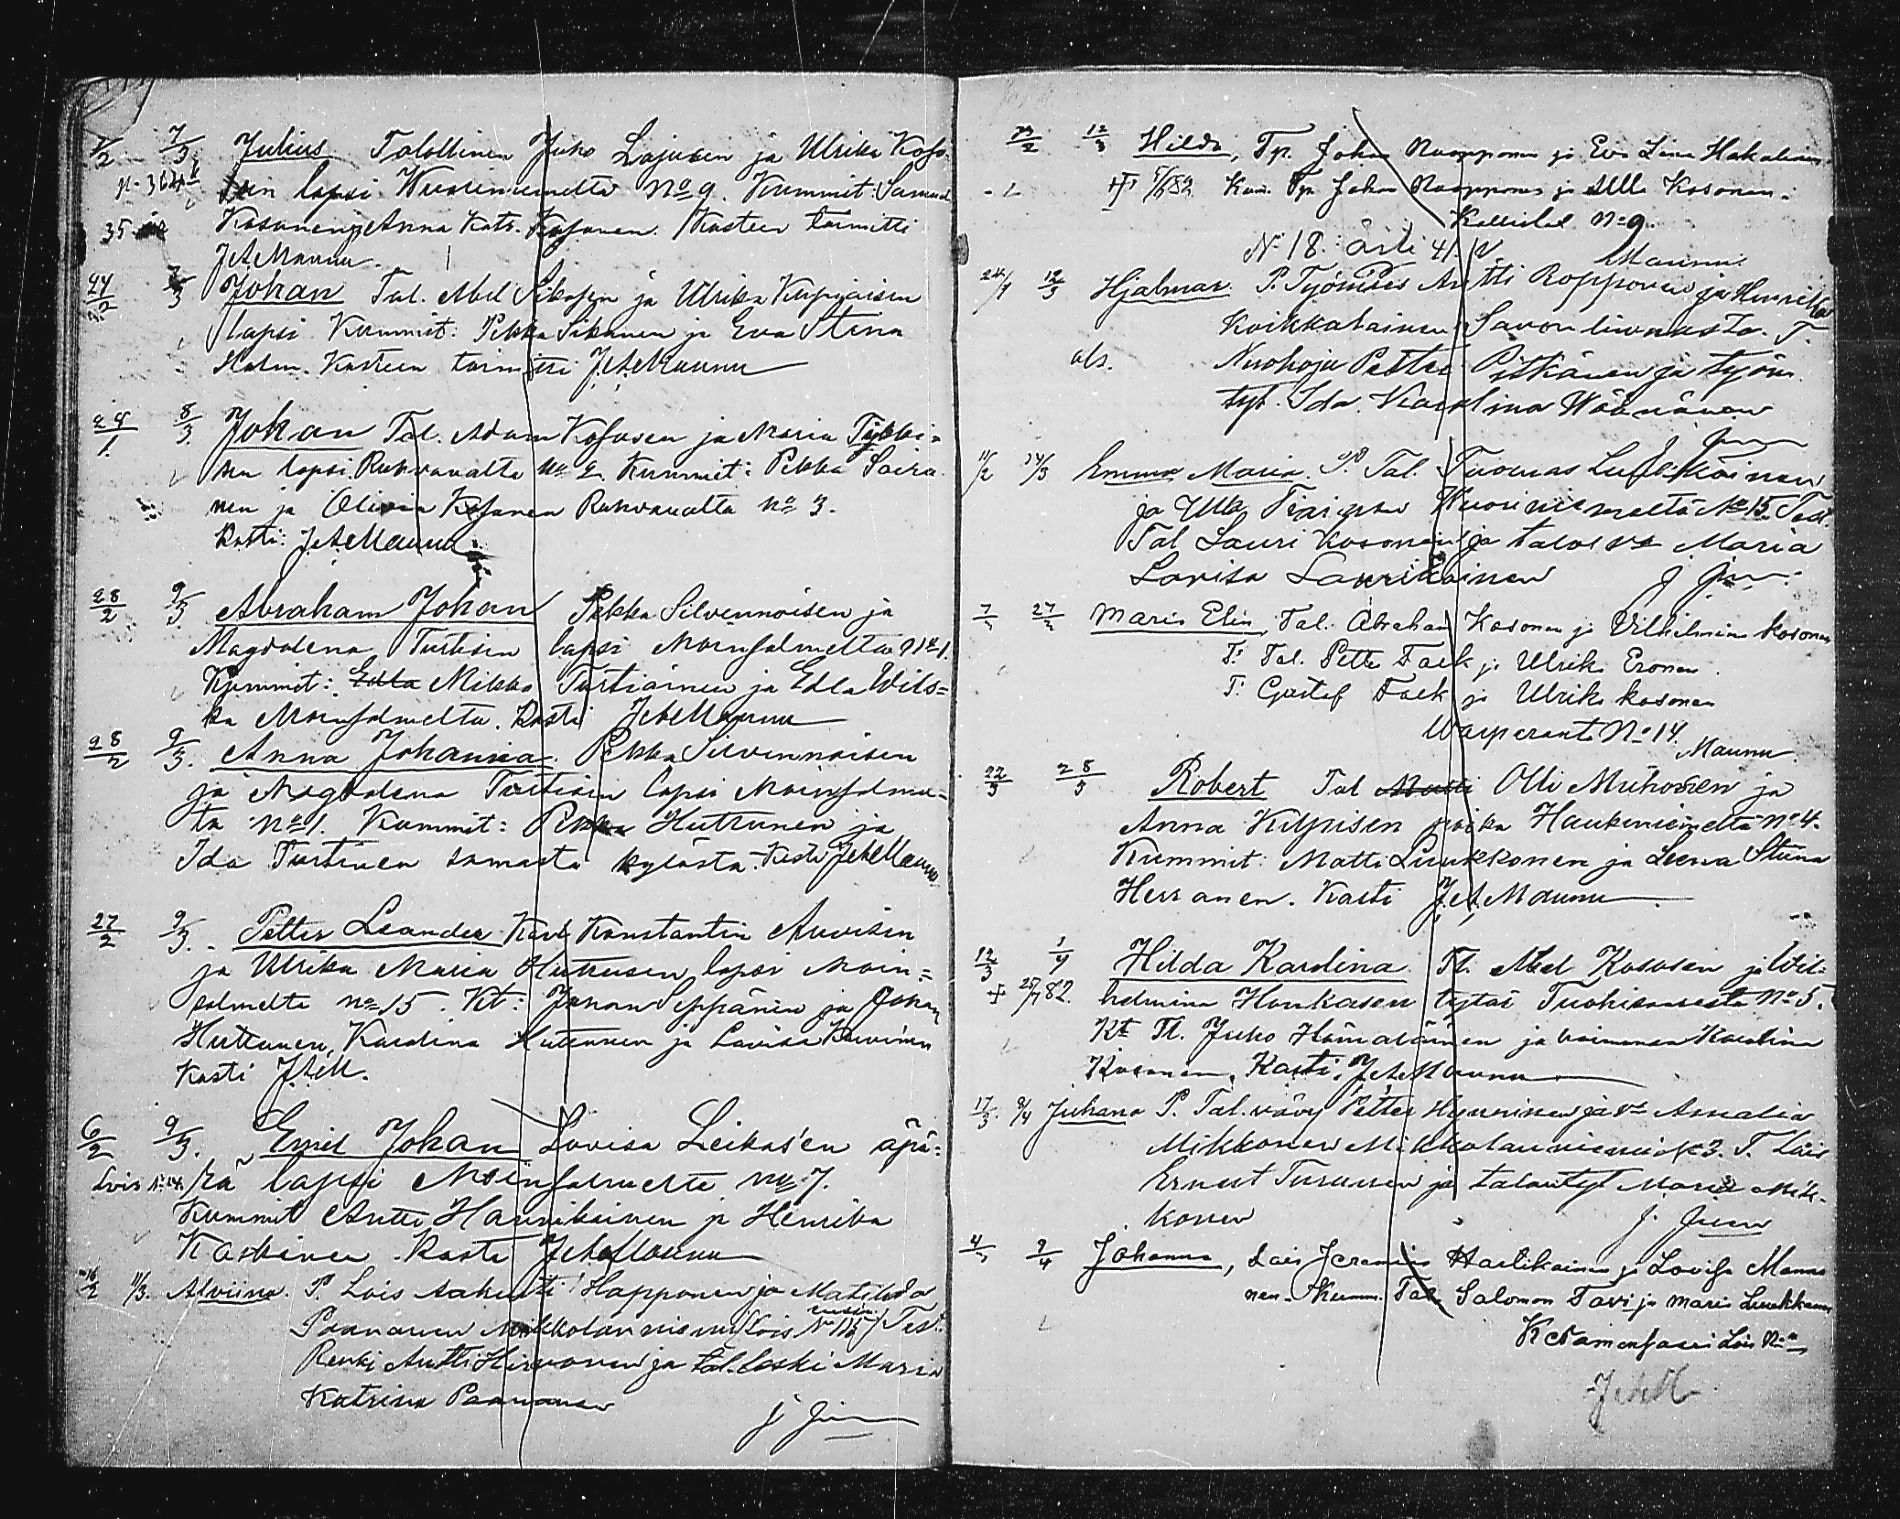 1/2 7/3 Julius Talollinen Juho Lajusen ja Ulrika Koso-
sen lapsi Wuoriniemeltä No 9. Kummit: Samuel
35 Kosonen ja Anna Katr. Kosonen. Kasteen toimitti
J.A.Maunu.
24/2 7/3 Johan Tal. Abel Sikasen ja Ulrika Kupiaisen
lapsi Kummit: Pekka Sikanen ja Eva Stina
Holm. Kasteen toimitti J.A.Maunu
24/1 8/3 Johan Tal. Adam Kososen ja Maria Tykki-
sen lapsi Ruhvanalta No 2. Kummit: Pekka Saira-
nen ja Olivia Kosonen Ruhvanalta No 3.
Kasti: J.A.Maunu
28/2 9/3 Abraham Johan Pekka Silvennoisen ja
Magdalena Turtisen lapsi Moinsalmelta No 1.
Kummit: Edla Mikko Turtiainen ja Edla Wils-
ka Moinsalmelta. Kasti J.A.Maunu
28/2 9/3. Anna Johanna. Pekka Silvennoisen
ja Magdalena Turtisen lapsi Moinsalme-
ta No 1. Kummit: Pekka Huttunen ja
Ida Turtinen samasta kylästä. Kasti J.A.Maunu
27/2 9/3. Petter Leander Karl Konstantin Auvisen
ja Ulrika Maria Huttusen lapsi Moin-
salmelta No 15. Kt: Johan Seppänen ja Johan
Huttunen, Karolina Huttunen ja Lovisa Karvinen
Kasti J.A.M.
6/2 9/3. Emil Johan Lovisa Leikas'en äpä-
Lois rä lapsi Moinsalmelta No 7.
Kummit Antti Hannikainen ja Henrika
Kaskinen. Kasti J.A.Maunu
16/2 11/3. Alviina. P. Lois Aakusti Happonen ja Matilda
Paananen Mikkolanniemi Lois No 115 Test.
Renki Antti Hirvonen ja tal. leski Maria
Katrina Paananen
12/3 Hilda, Tp. Johan Ruopponen ja Eva Lena Hakulinen.
Kum. Tp. Johan Ruopponen ja Ulla Kosonen.
Kallislal. No 9.
N. 18. 41.
Maunu.
24/1 12/3 Hjalmar. P. Työmies Antti Ropponen ja Henrika
Koikkalainen Savonlinnasta. T.
Nuohoja Petter Pitkänen ja työm.
tyt. Ida Karolina Wäänänen
11/2 24/3 Emma Maria. P. Tal. Tuomas Luukkoinen
ja Ulla Wuoriniemeltä No 15. Test
Tal Lauri Kosonen ja Maria
Lovisa Laurikainen
27/3 Maria Elin, Tal. Abraham Kosonen ja Vilhelmina Kosonen
T: Tal. Petter Falk ja Ulrika Eronen.
T: Gustaf Falk ja Ulrika Kosonen
Warparanta No 14.
Maunu.
22/3 28/3 Robert Tal Matti Olli Muhosen ja
Anna Kilpisen poika Haukiniemeltä No 4.
Kummit: Matti Luukkonen ja Leena Stiina
Herranen. Kasti J.A.Maunu
12/3 1/4 Hilda Karolina. Tl. Abel Kososen ja Wil-
82. helmina Honkasen tytär Tuohisaaresta No 5.
Kt Tl. Juho Hämäläinen ja vaimonsa Karolina
Kosonen. Kasti J.A.Maunu
17/3 8/4 Juhana P. Tal. vävy Petter Hynninen ja vo Amalia
Mikkonen Mikkolanniemi No 3. T. Lois
Ernest Turunen ja talontyt Maria Mik-
konen
9/4 Johanna, Lois Jeremias Hartikainen ja Lovisa Manni-
nen. Kumm. Tal. Salomon Tavi ja Maria Luukkonen
Lois
J.A.M.